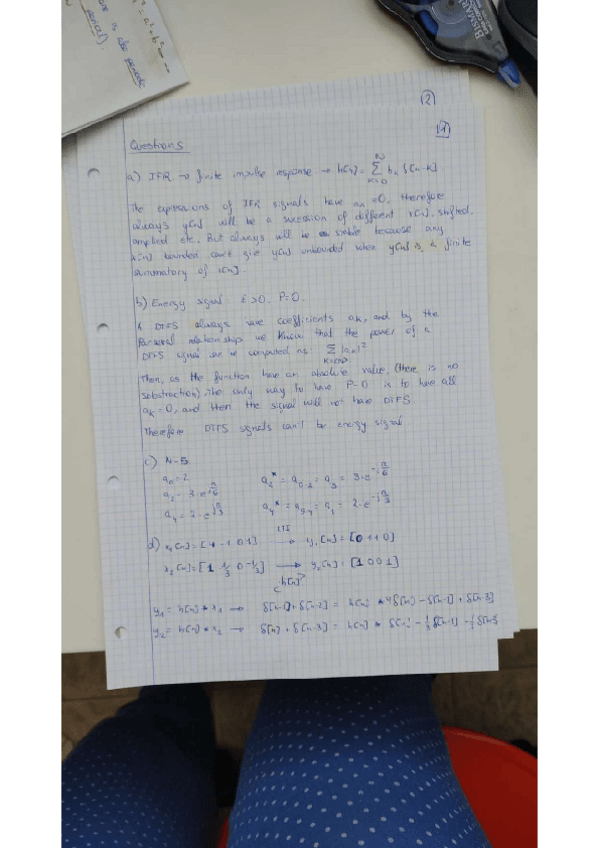 = a² + b² - -
is also periodic
period).
BISMARK
2
1
Questions
a) IFR → finite impulse response → h[n] = ∑ bₖ δ[n-k]
N
k=0
The expressions of IFR signals have an =0, therefore
always y[n] will be a sucession of different x[n], shifted,
amplied etc. But always will be stable because any
x[n] bounded can't give y[n] unbounded when y[n] is a finite
summatory of x[n].
b) Energy signal: E>0, P=0.
A DTFS always have coefficients aₖ, and by the
Parseval relationship we know that the power of a
DTFS signal can be computed as: ∑ |aₖ|²
Then, as the function have an absolute value, (there is no
substraction). The only way to have P=0 is to have all
aₖ=0, and then the signal will not have DTFS.
Therefore DTFS signals can't be energy signal
c) N=5
a₀=2
a₂ = 3·e^jπ/6 a₂* = a₅₋₂ = a₃ = 3·e^-jπ/6
a₄ = 2·e^jπ/3 a₄* = a₅₋₄ = a₁ = 2·e^-jπ/3
LTI
d) x₁[n] = [4 -1 0 1] → y₁[n] = [0 1 1 0]
x₂[n] = [1 1/3 0 -1/3] → y₂[n] = [1 0 0 1]
¿h[n]?
y₁ = h[n] * x₁ → δ[n-1] + δ[n-2] = h[n] * 4δ[n] - δ[n-1] + δ[n-3]
y₂ = h[n] * x₂ → δ[n] + δ[n-3] = h[n] * δ[n] - 1/3 δ[n-1] - 1/3 δ[n-3]